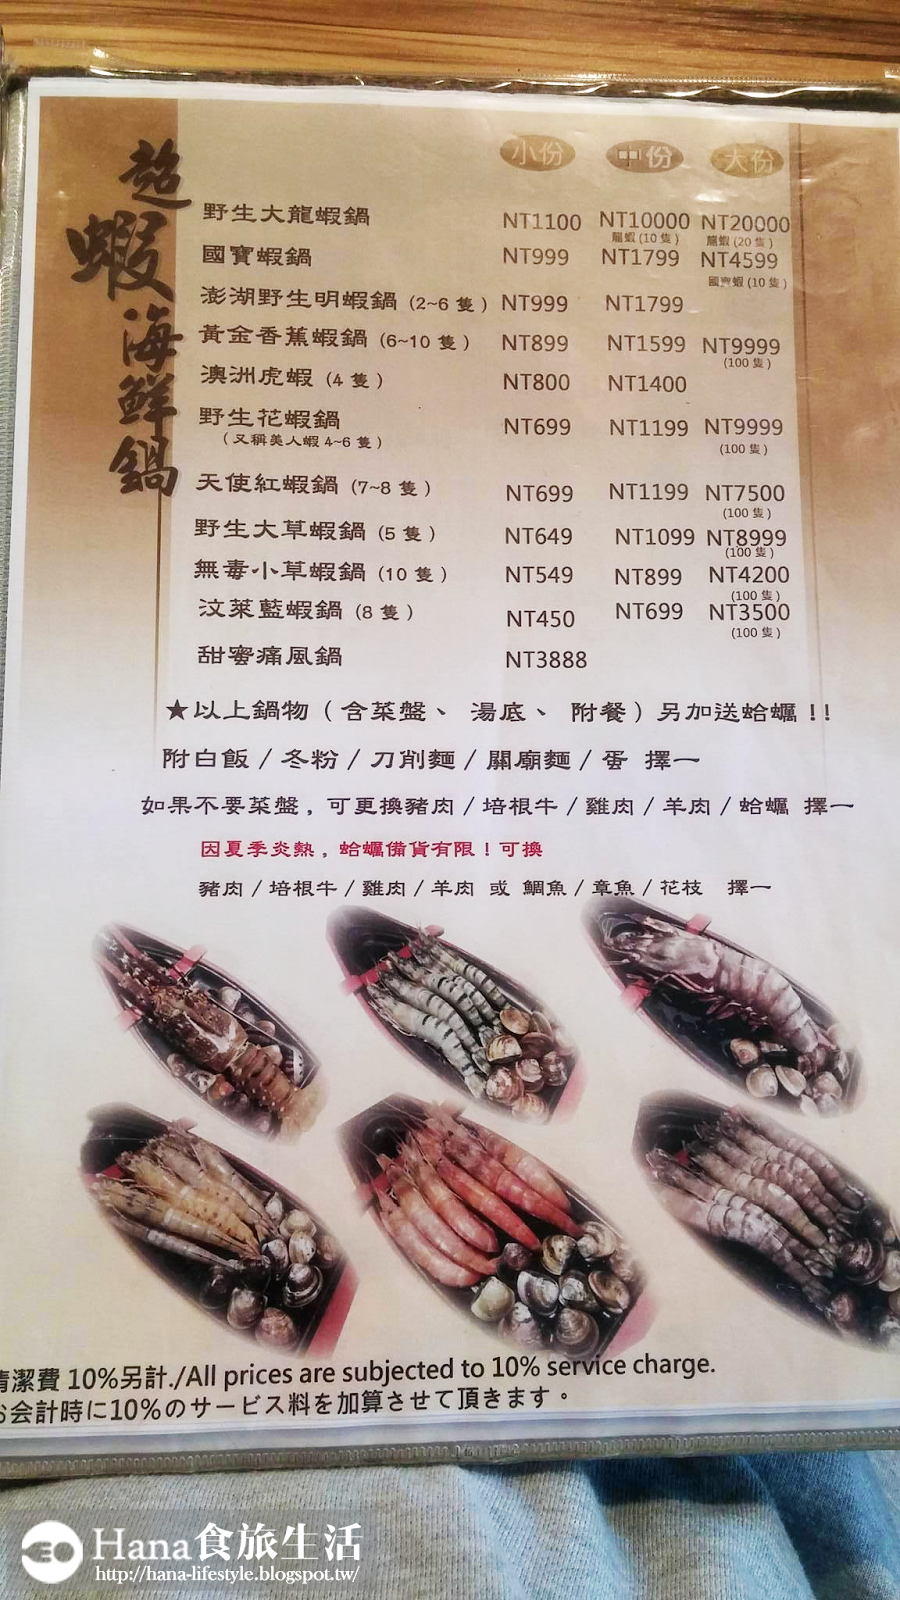 超蝦海鮮鍋
小份 中份 大份
野生大龍蝦鍋 NT1100 NT10000 NT20000
龍蝦 (10 隻) 龍蝦 (20 隻)
國寶蝦鍋 NT999 NT1799 NT4599
國寶蝦 (10 隻)
澎湖野生明蝦鍋 (2~6 隻) NT999 NT1799
黃金香蕉蝦鍋 (6~10 隻) NT899 NT1599 NT9999
(100 隻)
澳洲虎蝦 (4 隻) NT800 NT1400
野生花蝦鍋 NT699 NT1199 NT9999
(又稱美人蝦 4~6 隻) (100 隻)
天使紅蝦鍋 (7~8 隻) NT699 NT1199 NT7500
(100 隻)
野生大草蝦鍋 (5 隻) NT649 NT1099 NT8999
(100 隻)
無毒小草蝦鍋 (10 隻) NT549 NT899 NT4200
(100 隻)
汶萊藍蝦鍋 (8 隻) NT450 NT699 NT3500
(100 隻)
甜蜜痛風鍋 NT3888
★以上鍋物（含菜盤、湯底、附餐）另加送蛤蠣!!
附白飯/冬粉/刀削麵/關廟麵/蛋 擇一
如果不要菜盤，可更換豬肉/培根牛/雞肉/羊肉/蛤蠣 擇一
因夏季炎熱，蛤蠣備貨有限！可換
豬肉/培根牛/雞肉/羊肉 或 鯛魚/章魚/花枝 擇一
清潔費 10%另計./All prices are subjected to 10% service charge.
お会計時に10%のサービス料を加算させて頂きます。
Hana食旅生活
http://hana-lifestyle.blogspot.tw/